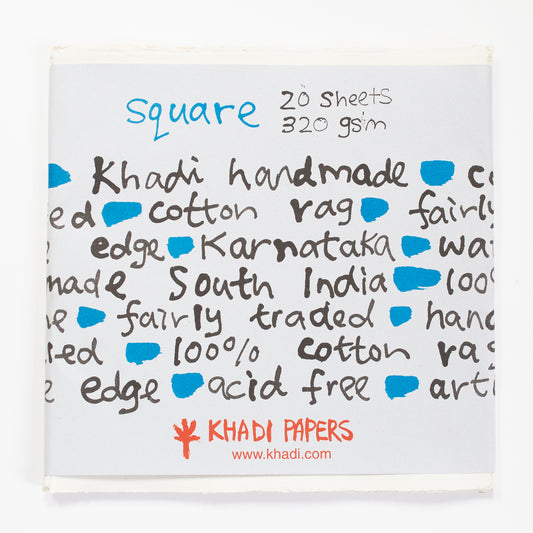 square 20 sheets
320 gsm
Khadi handmade
ed cotton rag fairly
edge Karnataka
made South India 100
fairly traded hand
100% cotton rag
edge acid free
KHADI PAPERS
www.khadi.com